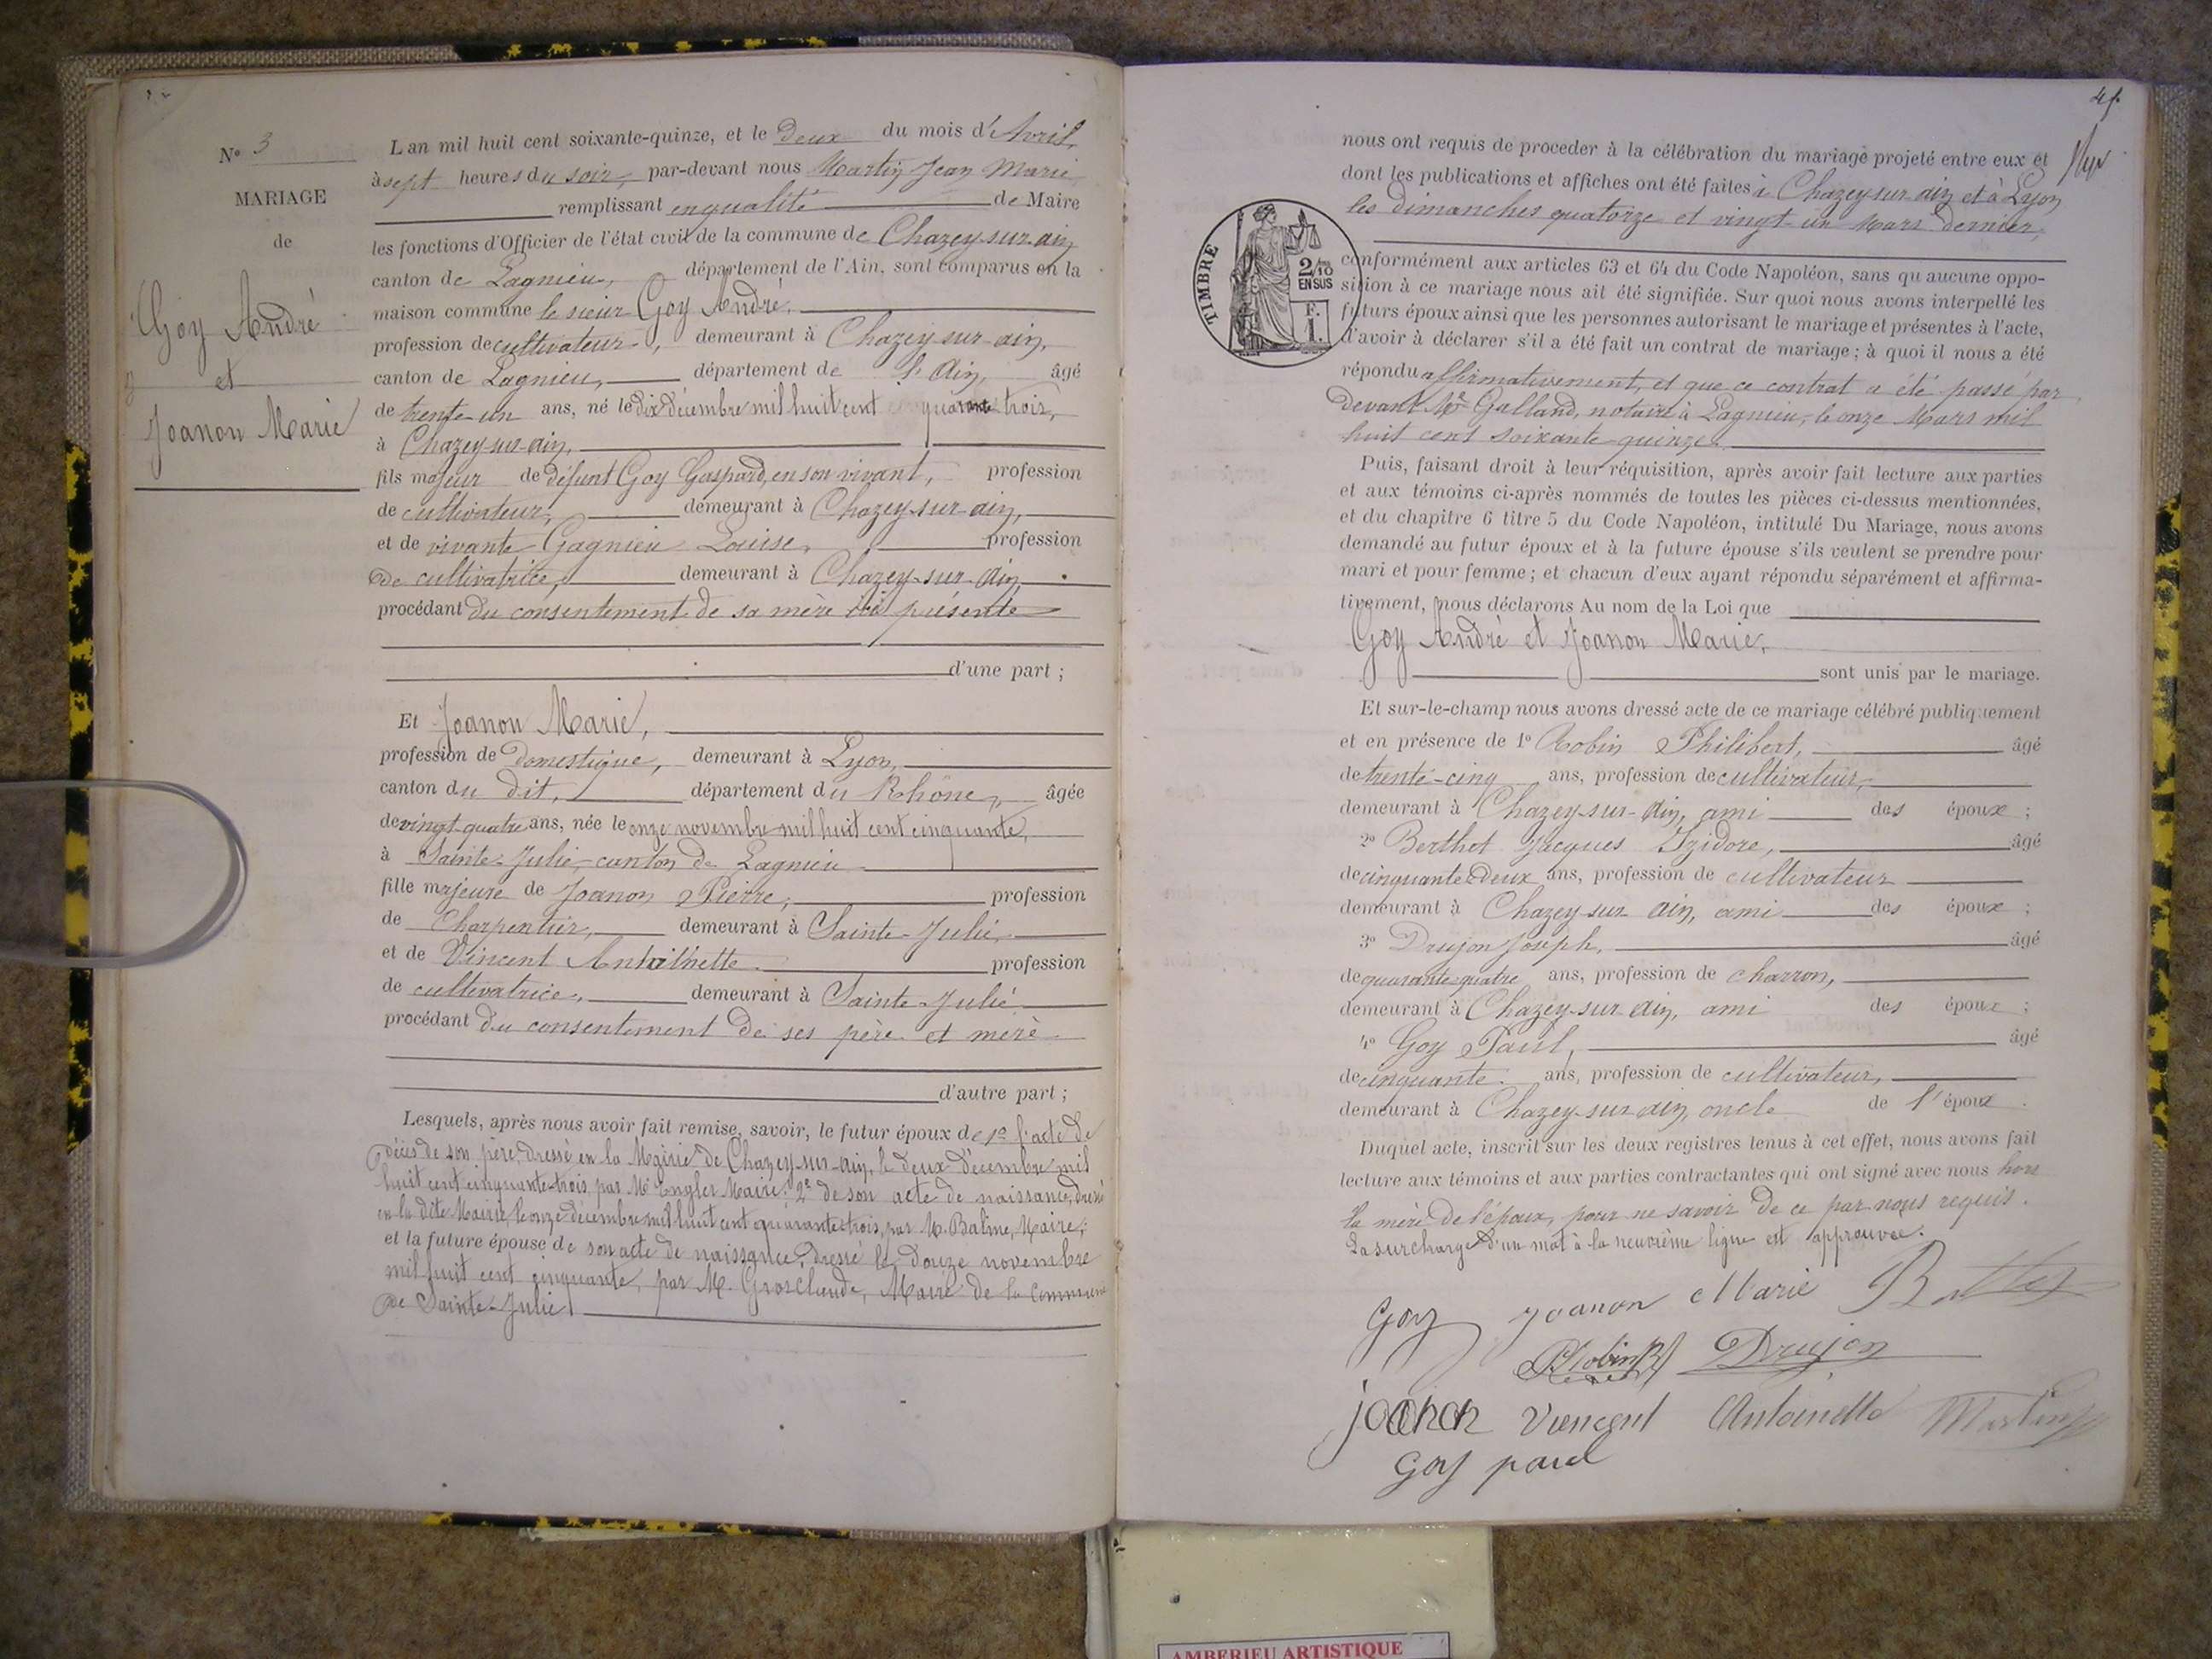 N° 3
MARIAGE
de
Goy André
et
Joanon Marie
L an mil huit cent soixante-quinze, et le deux du mois d'Avril,
à sept heures du soir, par-devant nous Martin Jean Marie
remplissant en qualité de Maire
les fonctions d'Officier de l'état civil de la commune de Chazey-sur-ain
canton de Lagnieu, département de l'Ain, sont comparus en la
maison commune le sieur Goy André,
profession de cultivateur, demeurant à Chazey-sur-ain,
canton de Lagnieu, département de l'Ain, âgé
de trente-un ans, né le dix décembre mil huit cent quarante trois,
à Chazey-sur-ain,
fils majeur de défunt Goy Gaspard, en son vivant, profession
de cultivateur, demeurant à Chazey-sur-ain,
et de vivante Gagnieu Louise, profession
de cultivatrice, demeurant à Chazey-sur-Ain
procédant du consentement de sa mère ici présente
d'une part ;
Et Joanon Marie,
profession de domestique, demeurant à Lyon,
canton du dit, département du Rhône, âgée
de vingt-quatre ans, née le onze novembre mil huit cent cinquante,
à Sainte-Julie, canton de Lagnieu
fille majeure de Joanon Pierre, profession
de Charpentier, demeurant à Sainte-Julie,
et de Vincent Antoinette profession
de cultivatrice, demeurant à Sainte-Julie
procédant du consentement de ses père et mère
d'autre part ;
Lesquels, après nous avoir fait remise, savoir, le futur époux de 1° l'acte de
décès de son père, dressé en la Mairie de Chazey-sur-Ain, le deux décembre mil
huit cent cinquante-trois, par Mr Engler Maire; 2° de son acte de naissance, dressé
en la dite Mairie le onze décembre mil huit cent quarante-trois, par M. Balme, Maire;
et la future épouse de son acte de naissance, dressé le douze novembre
mil huit cent cinquante, par M. Grosclaude, Maire de la Commune
de Sainte-Julie.
nous ont requis de proceder à la célébration du mariage projeté entre eux et
dont les publications et affiches ont été faites à Chazey-sur-ain et à Lyon
les dimanches quatorze et vingt-un Mars dernier,
TIMBRE
2/10
EN SUS
F.
1.
conformément aux articles 63 et 64 du Code Napoléon, sans qu aucune oppo-
sition à ce mariage nous ait été signifiée. Sur quoi nous avons interpellé les
futurs époux ainsi que les personnes autorisant le mariage et présentes à l'acte,
d'avoir à déclarer s'il a été fait un contrat de mariage ; à quoi il nous a été
répondu affirmativement, et que ce contrat a été passé par
devant Me Galland, notaire à Lagnieu, le onze Mars mil
huit cent soixante-quinze.
Puis, faisant droit à leur réquisition, après avoir fait lecture aux parties
et aux témoins ci-après nommés de toutes les pièces ci-dessus mentionnées,
et du chapitre 6 titre 5 du Code Napoléon, intitulé Du Mariage, nous avons
demandé au futur époux et à la future épouse s'ils veulent se prendre pour
mari et pour femme ; et chacun d'eux ayant répondu séparément et affirma-
tivement, nous déclarons Au nom de la Loi que
Goy André et Joanon Marie,
sont unis par le mariage.
Et sur-le-champ nous avons dressé acte de ce mariage célébré publiquement
et en présence de 1° Robin Philibert, âgé
de trente-cinq ans, profession de cultivateur,
demeurant à Chazey-sur-Ain, ami des époux ;
2° Berthet Jacques Izidore, âgé
de cinquante-deux ans, profession de cultivateur
demeurant à Chazey-sur Ain, ami des époux ;
3° Drujon Joseph, âgé
de quarante-quatre ans, profession de charron,
demeurant à Chazey-sur-Ain, ami des époux ;
4° Goy Paul, âgé
de cinquante ans, profession de cultivateur,
demeurant à Chazey-sur-ain, oncle de l'époux.
Duquel acte, inscrit sur les deux registres tenus à cet effet, nous avons fait
lecture aux témoins et aux parties contractantes qui ont signé avec nous hors
la mère de l'époux, pour ne savoir de ce par nous requis.
La surcharge d'un mot à la neuvième ligne est approuvée.
Goy Joanon Marie
Robin Drujon
joanon Viencent Antoinette Martin
Goy paul
AMBERIEU ARTISTIQUE